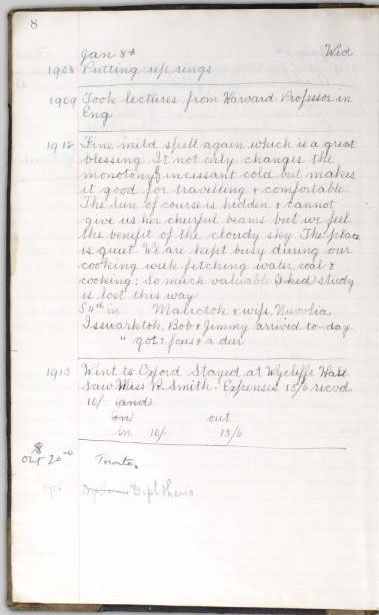 8
Jan 8th Wed
1908 Putting up rings
1909 Took lectures from Harvard Professor in
Eng
1912 Fine mild spell again which is a great
blessing. It not only changes the
monotony of incessant cold but makes
it good for travelling & comfortable.
The Sun of course is hidden & cannot
give us her cheerful beams but we feel
the benefit of the cloudy sky. The place
is quiet. We are kept busy during our
cooking week fetching water, coal &
cooking: So much valuable study
is lost this way
in Malictok & wife Nuvolia
Bob & Jimmy arrived to-day.
" got 2 foxes & a deer
1913 Went to Oxford Stayed at Wycliffe Hall
Saw Miss R. Smith. Expenses 15/6 recvd
10/- and
on out
in 10/- 15/6
$
out 20.00 Toronto.
Diphtheria